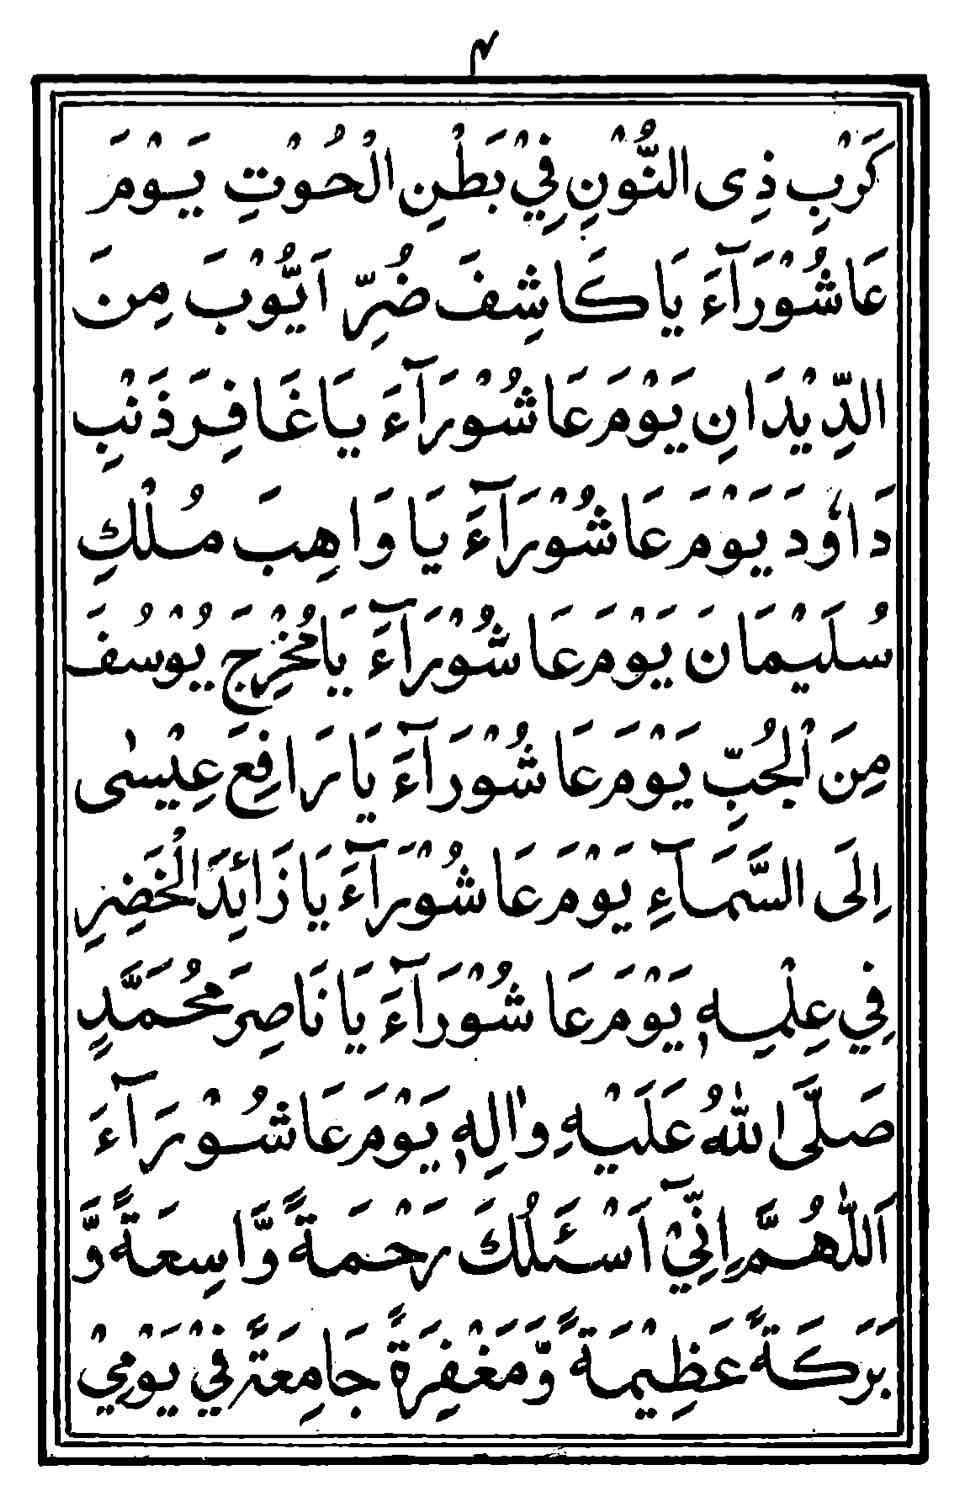 ۴
كَرْبِ ذِى النُّوْنِ فِيْ بَطْنِ الْحُوْتِ يَوْمَ
عَاشُوْرَآءَ يَا كَاشِفَ ضُرِّ اَيُّوْبَ مِنَ
الدِّيْدَانِ يَوْمَ عَاشُوْرَآءَ يَا غَافِرَ ذَنْبِ
دَاوٗدَ يَوْمَ عَاشُوْرَآءَ يَا وَاهِبَ مُلْكِ
سُلَيْمَانَ يَوْمَ عَاشُوْرَآءَ يَا مُخْرِجَ يُوْسُفَ
مِنَ الْجُبِّ يَوْمَ عَاشُوْرَآءَ يَا رَافِعَ عِيْسٰى
اِلَى السَّمَآءِ يَوْمَ عَاشُوْرَآءَ يَا زَائِدَ الْخَضِرِ
فِي عِلْمِهٖ يَوْمَ عَاشُوْرَآءَ يَا نَاصِرَ مُحَمَّدٍ
صَلَّى اللهُ عَلَيْهِ وَاٰلِهٖ يَوْمَ عَاشُوْرَآءَ
اَللّٰهُمَّ اِنِّيْٓ اَسْئَلُكَ رَحْمَةً وَّاسِعَةً وَّ
بَرَكَةً عَظِيْمَةً وَّمَغْفِرَةً جَامِعَةً فِيْ يَوْمِيْ